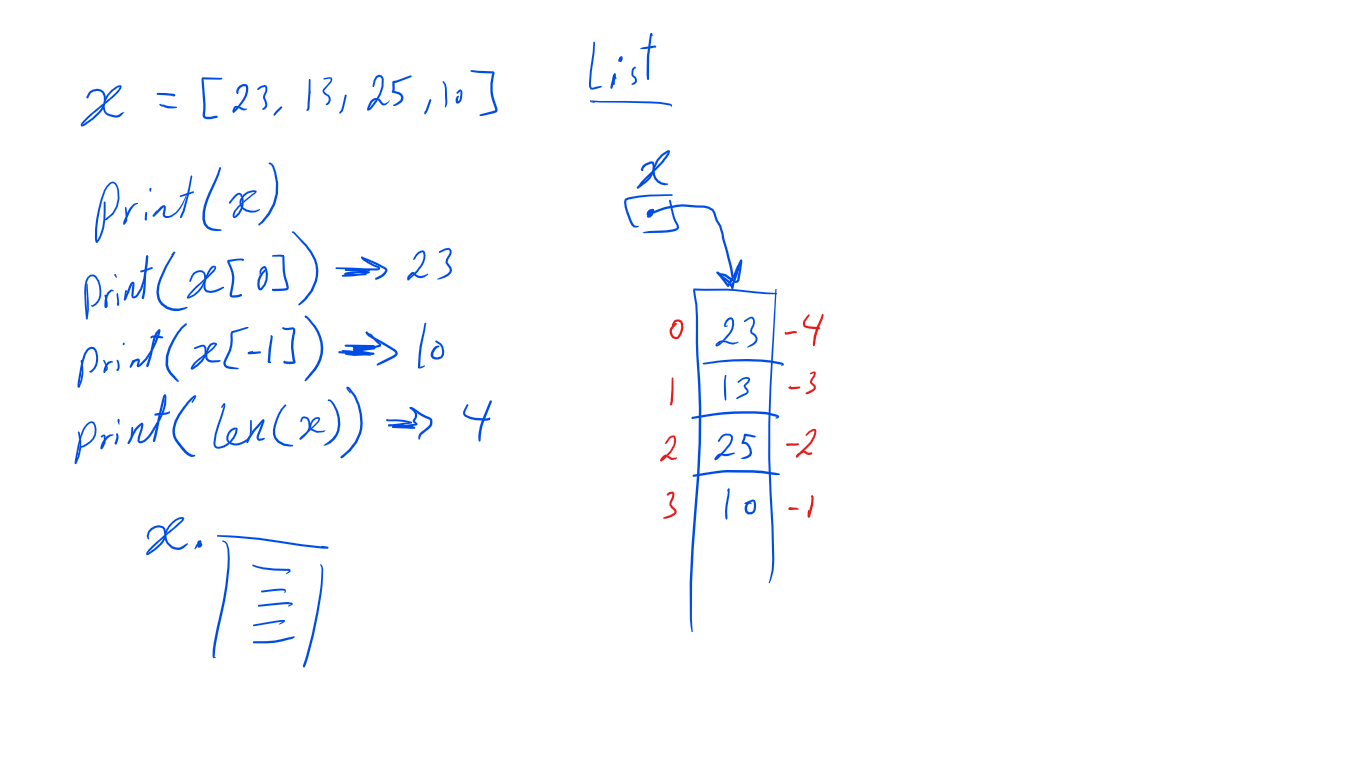 x = [23, 13, 25, 10]
List
Print(x)
print(x[0]) → 23
print(x[-1]) → 10
print(len(x)) → 4
x.
x
0 23 -4
1 13 -3
2 25 -2
3 10 -1